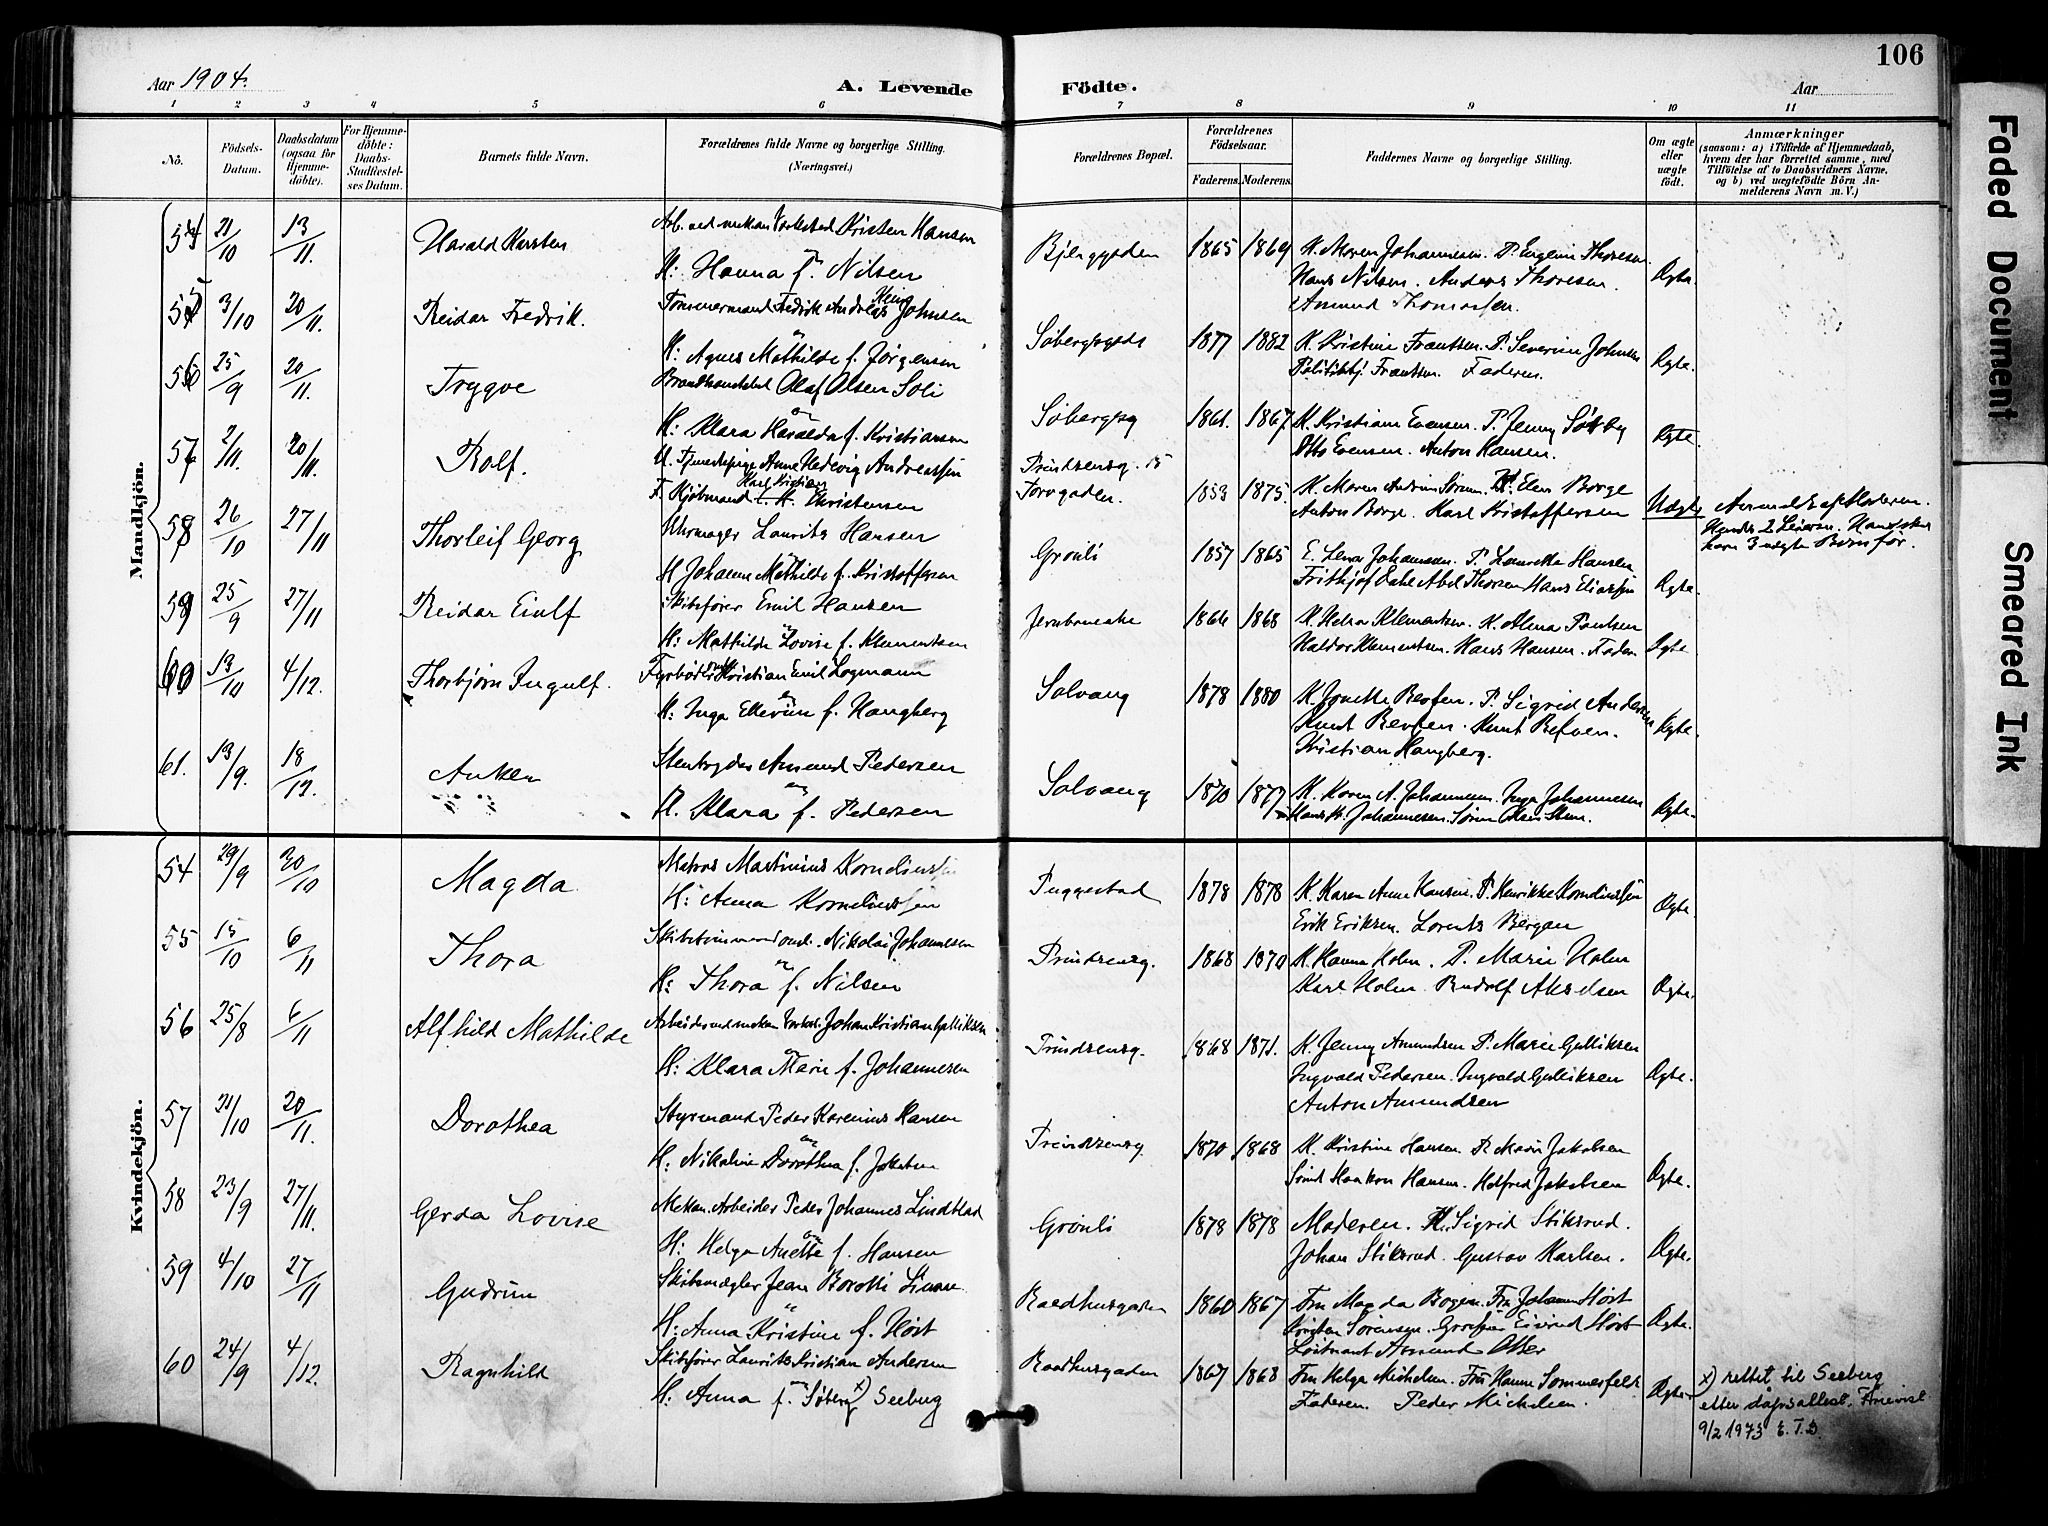 106
Aar 1904.
A. Levende Födte.
Aar
1 2 3 4 5 6 7 8 9 10 11
No.
Födsels-Datum.
Daabsdatum (ogsaa for Hjemme-döbte).
For Hjemme-döbte: Daabs-Stadfæstel-ses Datum.
Barnets fulde Navn.
Forældrenes fulde Navne og borgerlige Stilling.
(Næringsvei.)
Forældrenes Bopæl.
Forældrenes Födselsaar.
Faderens. Moderens.
Faddernes Navne og borgerlige Stilling.
Om ægte eller uægte födt.
Anmærkninger
(saasom: a) i Tilfælde af Hjemmedaab, hvem der har forrettet samme, med Tilföielse af to Daabsvidners Navne, og b) ved uægtefödte Börn An-melderens Navn m. V.)
Mandkjön.
54 21/10 13/11 Harald Karsten
Arb. ved mekan Verksted Kristen Hansen
H: Hanna f. Nilsen
Bjerggaden 1865 1869
K. Maren Johannesen. P. Eugenie Thoresen.
Hans Nilsen. Anders Thoresen.
Amund Thomassen.
Ægte.
55 3/10 20/11 Reidar Fredrik.
Tømmermand Fredrik Andreas Johnsen
H: Agnes Mathilde f. Jørgensen
Søbergsgade 1877 1882
K. Kristine Frantsen. P. Severine Johnsen
Politibtj. Frantsen. Faderen.
Ægte.
56 25/9 20/11 Trygve
Brandkonstabel Olaf Olsen Soli
H: Klara Haralda f. Kristiansen
Søbergsg 1861. 1867.
K. Kristiane Evensen. P. Jenny Sørby
Otto Evensen. Anton Hansen.
Ægte.
57 2/11. 20/11. Rolf.
U. Tjenestepige Anne Hedvig Andreassen
F. Kjøbmand Karl Kristian Christensen
Prindsensg. 15
Torvgaden. 1853 1875.
K. Maren Andrine Sørum. K: Elen Borge
Anton Borge. Karl Kristoffersen
Uægte
Anmeldt af Moderen.
Hendes 2 Leierm. Han skal
have 3 uægte Børn før.
58 26/10 27/11 Thorleif Georg
Uhrmager Laurits Hansen
H Johanne Mathilde f. Kristoffersen
Grønli 1857 1865
E. Lena Johannesen. P. Lauretta Hansen
Frithjof Dahl Abel Thorsen Hans Eliassen
Ægte.
59 25/9 27/11 Reidar Eiulf
Skibsfører Emil Hansen
H: Mathilde Lovise f. Klementsen
1864 1868
K. Helga Klementsen. K. Alma Paulsen
Haldor Klementsen. Hans Hansen. Faderen
Ægte.
60 13/10 4/12. Thorbjørn Ingulf.
Fyrbøder Kristian Emil Logmann
H: Inga Ellevine f. Haugberg
Solvang 1878 1880
K. Jonette Befven. P. Sigrid Andersen
Knut Befven. Knut Befven.
Kristian Haugberg.
Ægte.
61. 13/9. 18/12. Anken
Stenhugger Amund Pedersen
H. Klara f. Pedersen
Solvang 1870 1877
K. Karen A. Johannesen. Inga Johannesen
Hans K. Johannesen. Søren Olsen Skum.
Ægte.
Kvindekjön.
54 29/9 30/10 Magda
Matros Martinius Korneliussen
H: Anna Korneliussen
Puggestad 1878 1878
K. Karen Anne Hansen. P. Henrikke Korneliussen
Erik Eriksen. Lorents Bergan
Ægte.
55 15/10 6/11 Thora
Skibstømmermand. Nikolai Johannesen
H: Thora f. Nilsen
Prindsensg. 1868 1870
K. Hanna Holm. P. Marie Holm
Karl Holm. Rudolf Akselsen
Ægte.
56 25/8 6/11 Alfhild Mathilde
Arbeider ved mekan Verkst. Johan Kristian Gulliksen
H: Klara Marie f. Johannesen
Prindsensg. 1868 1871.
K. Jenny Amundsen P. Marie Gulliksen
Ingvald Pedersen. Ingvald Gulliksen
Anton Amundsen
Ægte.
57 21/10 20/11. Dorothea
Styrmand Peder Karenius Hansen
H. Nikoline Dorothea f. Jakobsen
Prindsensg 1870 1868
K. Kristine Hansen P. Marie Jakobsen
Smed Haakon Hansen. Halfred Jakobsen
Ægte.
58 23/9 27/11. Gerda Lovise
Mekan. Arbeider Peder Johannes Lindblad
H: Helga Anette f. Hansen
Grønli 1878 1878
Moderen. K. Sigrid Stiksrud.
Johan Stiksrud. Gustav Karlsen.
Ægte.
59 4/10 27/11 Gudrun
Skibsmægler Jean Borotti Linaae
H: Anna Kristine f. Høst
Raadhusgaden 1860 1867
Fru Magda Bogen. Fru Johanne Høst
Kristen Sørensen. Grosserer Eivind Høst
Løitnant Amund
Ægte.
60 24/9 4/12. Ragnhild
Skibsfører Laurits Kristian Andersen
H: Anna f. Søberg x) Seeberg
Raadhusgaden 1867 1868
Fru Helga Michelsen. Frk Hanna Sommerfelt
Faderen. Peder Michelsen.
Ægte.
x) rettet til Seeberg
etter dåpsattest. Forevist
9/2 1973 E.T.D.
Faded Document
Smeared Ink